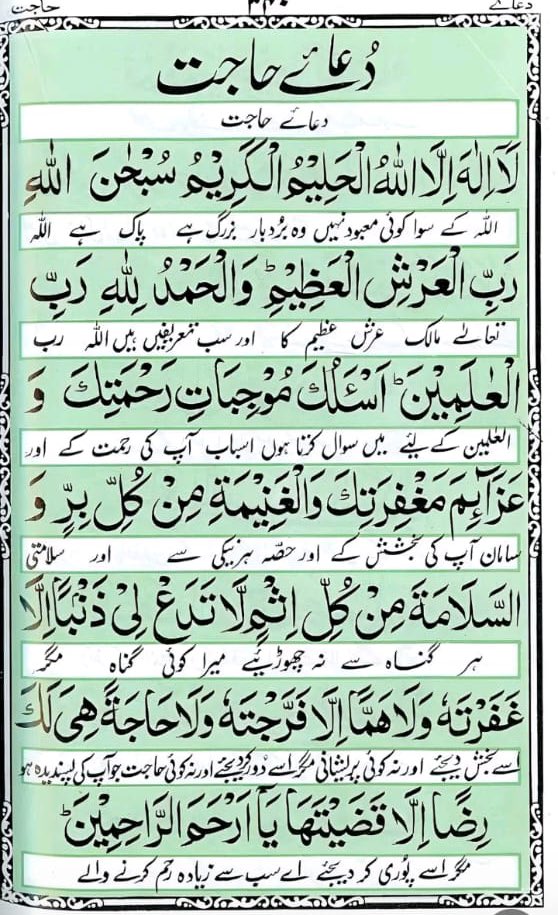 دعائے حاجت
دُعائے حاجت
دعائے حاجت
لَآ اِلٰهَ اِلَّا اللّٰهُ الْحَلِيْمُ الْكَرِيْمُ سُبْحٰنَ اللّٰهِ
اللہ کے سوا کوئی معبود نہیں وہ بردبار بزرگ ہے پاک ہے اللہ
رَبِّ الْعَرْشِ الْعَظِيْمِ ؕ وَالْحَمْدُ لِلّٰهِ رَبِّ
تعالےٰ مالک عرش عظیم کا اور سب تعریفیں ہیں اللہ رب
الْعٰلَمِيْنَ ؕ اَسْئَلُكَ مُوْجِبَاتِ رَحْمَتِكَ وَ
العٰلمین کے لیئے میں سوال کرتا ہوں اسباب آپ کی رحمت کے اور
عَزَآئِمَ مَغْفِرَتِكَ وَالْغَنِيْمَةَ مِنْ كُلِّ بِرٍّ وَ
سامان آپ کی بخشش کے اور حصّہ ہر نیکی سے اور سلامتی
السَّلَامَةَ مِنْ كُلِّ اِثْمٍ لَّا تَدَعْ لِيْ ذَنْبًا اِلَّا
ہر گناہ سے نہ چھوڑیئے میرا کوئی گناہ مگر
غَفَرْتَهٗ وَلَا هَمًّا اِلَّا فَرَّجْتَهٗ وَلَا حَاجَةً هِيَ لَكَ
اسے بخش دیجئے اور نہ کوئی پریشانی مگر اسے دور کر دیجئے اور نہ کوئی حاجت جو آپ کی پسندیدہ ہو
رِضًا اِلَّا قَضَيْتَهَا يَآ اَرْحَمَ الرَّاحِمِيْنَ ؕ
مگر اسے پوری کر دیجئے اے سب سے زیادہ رحم کرنے والے